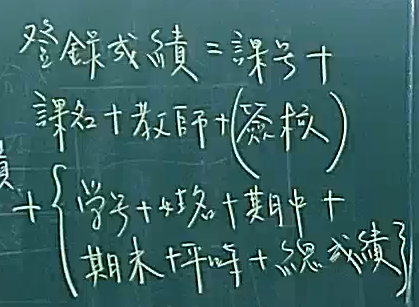 登錄成績=課号+
課名+教師+(簽核)
+{学号+姓名+期中+
期末+平時+總成績}